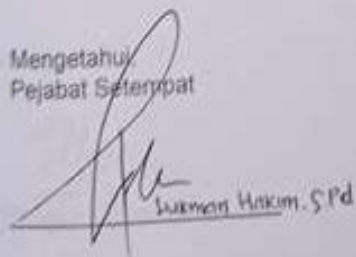 Mengetahui
Pejabat Setempat
Lukman Hakim. S.Pd